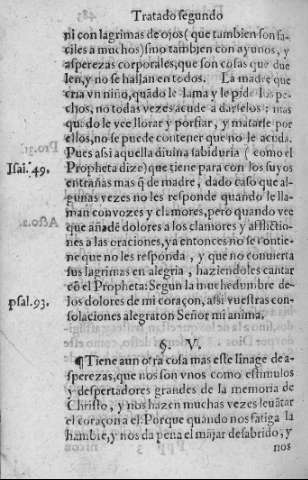 Tratado segundo
ni con lagrimas de ojos (que tambien son fa-
ciles a muchos) sino tambien con ayunos, y
asperezas corporales, que son cosas que due
len, y no se hallan en todos. La madre que
cria vn niño, quãdo le llama y le pide los pe-
chos, no todas vezes acude a darselos: mas
quãdo le vee llorar y porfiar, y matarse por
ellos, no se puede contener que no le acuda.
Pues assi aquella diuina sabiduria (como el
Isai. 49.
Propheta dize) que tiene para con los suyos
entrañas mas q̃ de madre, dado caso que al-
gunas vezes no les responde quando le lla-
man con vozes y clamores, pero quando vee
que añadẽ dolores a los clamores y afflictio-
nes a las oraciones, ya entonces no se contie-
ne que no les responda, y que no conuierta
sus lagrimas en alegria, haziendoles cantar
cõ el Propheta: Segun la muchedumbre de
psal. 93.
los dolores de mi coraçon, assi vuestras con-
solaciones alegraron Señor mi anima.
§. V.
¶ Tiene aun otra cosa mas este linage de a-
sperezas, que nos son vnos como estimulos
y despertadores grandes de la memoria de
Christo, y nos hazen muchas vezes leuãtar
el coraçon a el: Porque quando nos fatiga la
hambre, y nos da pena el mãjar desabrido, y
nos